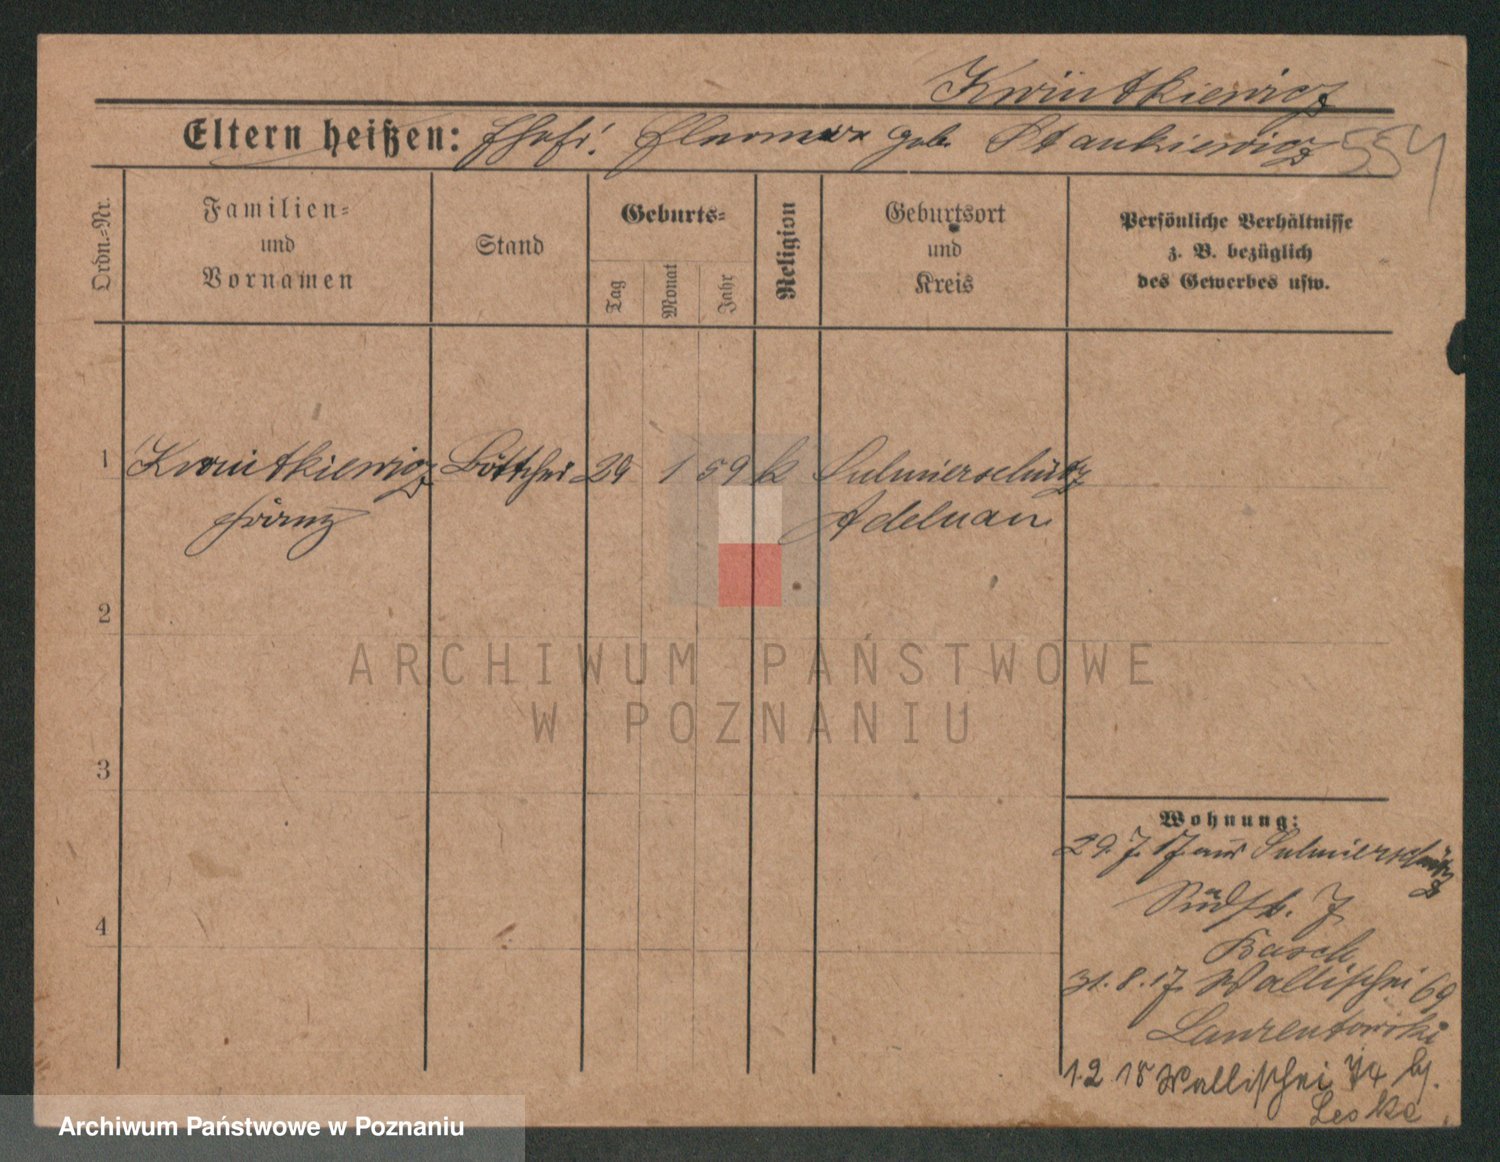 Kwiatkiewicz
Eltern heißen: Ehefr: Eleonora geb. Stankiewicz
554
Ordn.=Nr.
Familien=
und
Vornamen
Stand
Geburts=
Tag
Monat
Jahr
Religion
Geburtsort
und
Kreis
Persönliche Verhältnisse
z. B. bezüglich
des Gewerbes usw.
1 Kwiatkiewicz Böttcher 29 1 59 k Sulmierschütz
Franz Adelnau
2
3
4
Wohnung:
29. 7. 17. aus Sulmierschütz
Südstr. 7
Basch
31. 8. 17. Wallischei 69
Laurentowski
1.2 18 Wallischei 74 bj.
Leske
ARCHIWUM PAŃSTWOWE
W POZNANIU
Archiwum Państwowe w Poznaniu